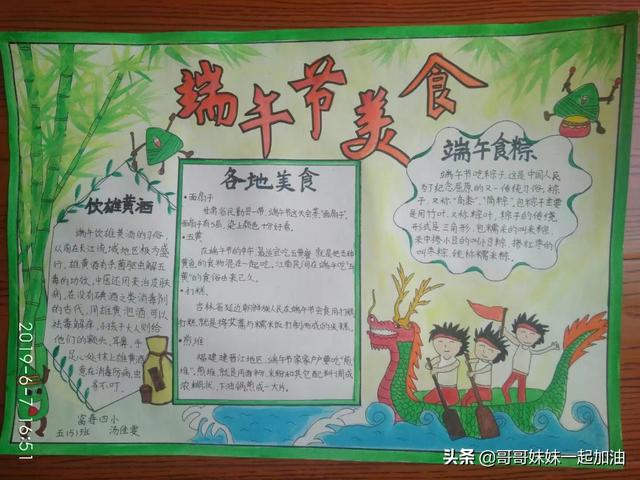 端午节美食
饮雄黄酒
端午饮雄黄酒的习俗,
以前在长江流域地区极为盛
行。雄黄酒有杀菌驱虫解五
毒的功效,中医还用来治皮肤
病。在没有碘酒之类消毒剂
的古代,用雄黄泡酒,可以
祛毒解痒。小孩子大人则给
他们的额头、耳鼻、手
足心处抹上雄黄酒
意在消毒防病,虫
豸不叮。
富春四小
五(5)班 汤佳雯
各地美食
•面扇子
甘肃省民勤县一带,端午节这天会蒸"面扇子"。
面扇子有5层,染上颜色十分好看。
•五黄
在端午节的中午,最适宜吃五黄餐,就是把五种
黄色的食物混在一起吃。江南民间在端午吃"五
黄"的食俗由来已久。
•打糕
吉林省延边朝鲜族人民在端午节会食用打糕。
打糕,就是将艾蒿与糯米饭打制而成的米糕。
•煎堆
福建晋江地区,端午节家家户户要吃"煎
堆",煎堆,就是用面粉、米粉和其它配料调成
浓糊状,下油锅煎成一大片。
端午食粽
端午节吃粽子,这是中国人民
为了纪念屈原的又一传统习俗。粽
子,又称"角黍"、"筒粽"。包粽子主要
是用竹叶,又称粽叶,粽子的传统
形式是三角形,包糯米的叫米粽,
米中掺小豆的叫小豆粽,掺红枣的
叫枣粽,统称糯米粽。
2019-6-7 16:51
头条 @哥哥妹妹一起加油